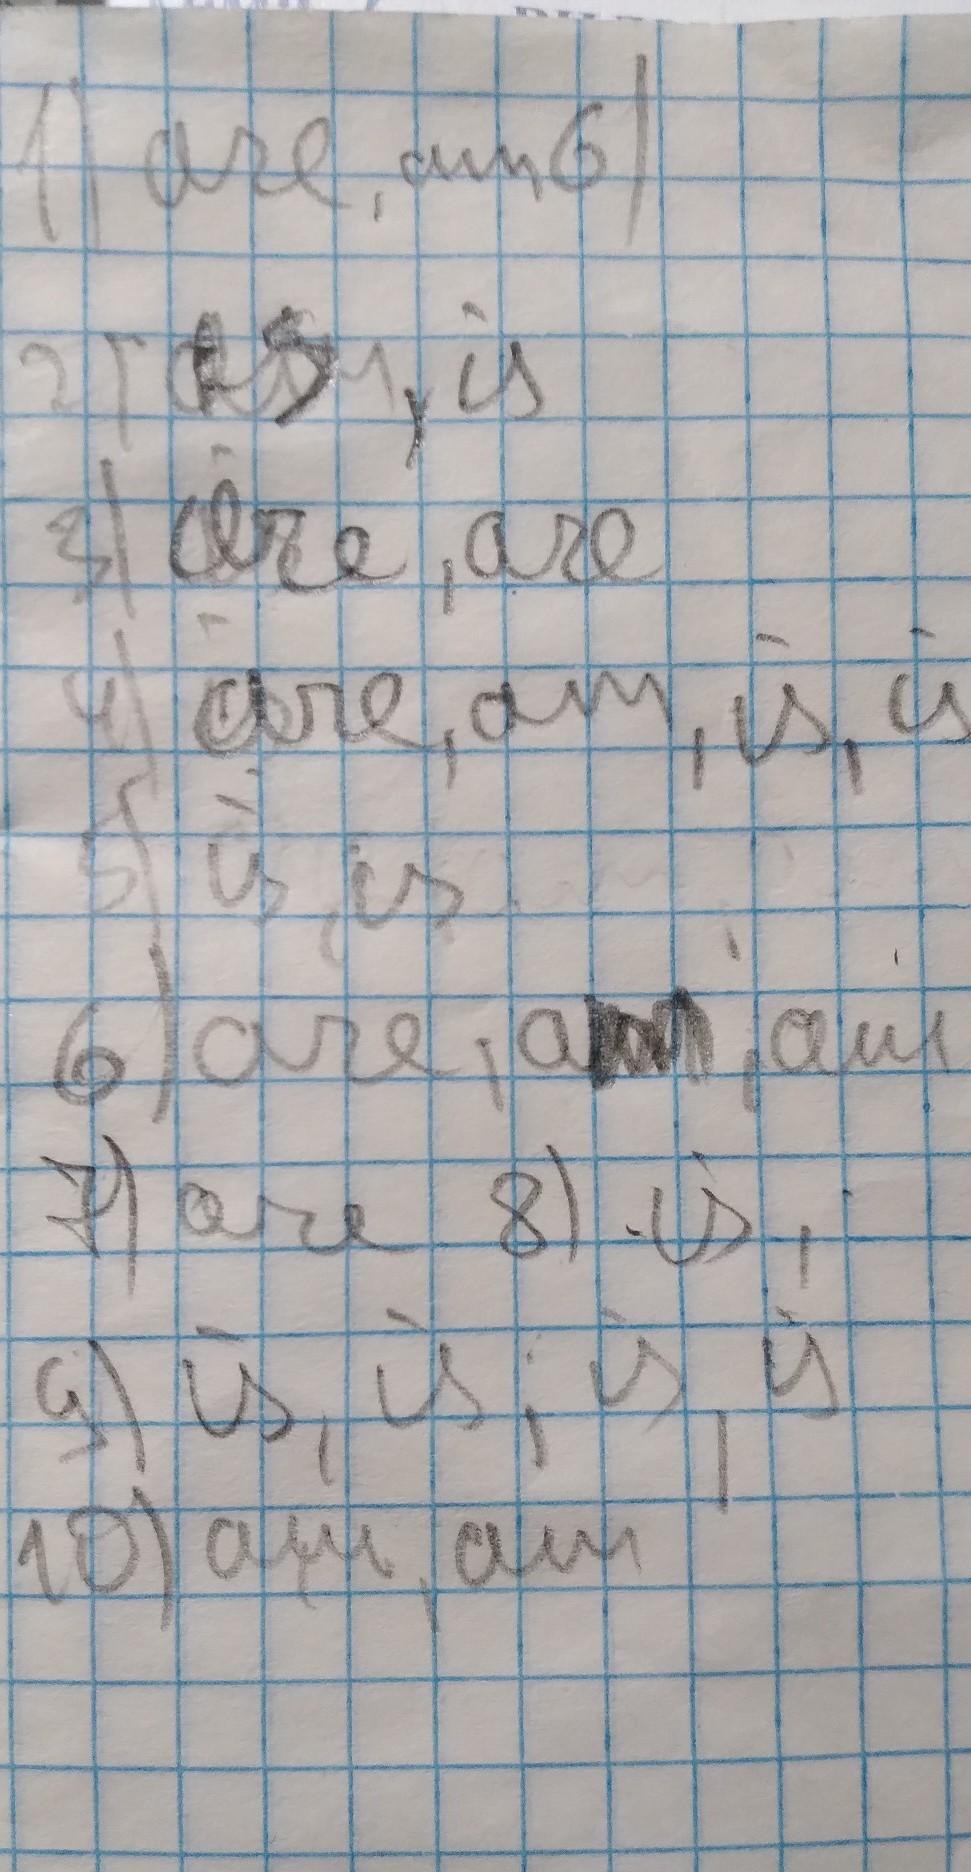 1) are, am, 6)
2) is, is
3) are, are
4) are, am, is, is
5) is, is
6) are, am, am
7) are 8) is,
9) is, is, is, is
10) am, am